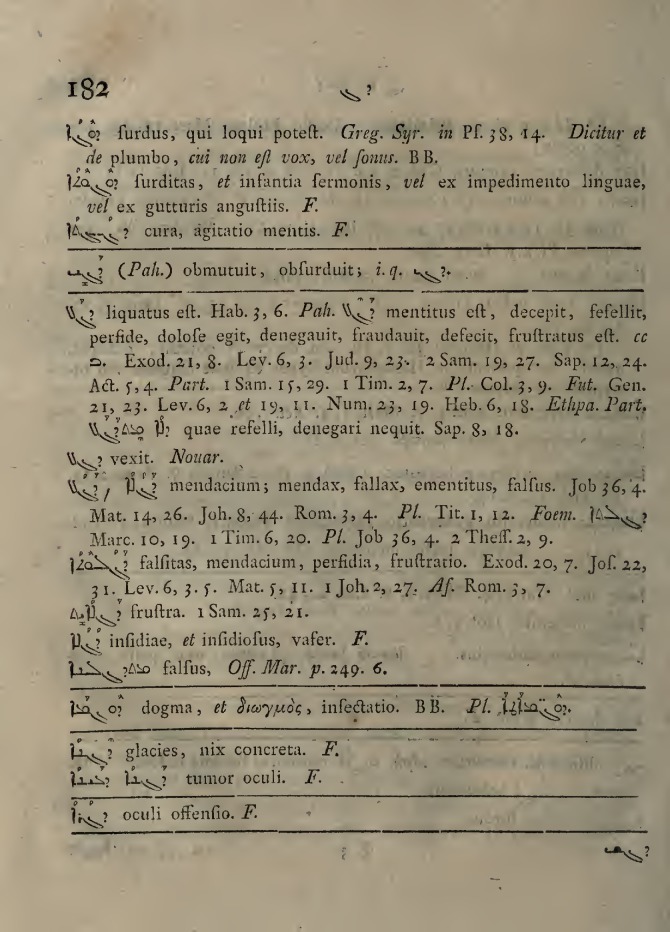 182 ܕܓ
ܕܘܓܐ ſurdus, qui loqui poteſt. Greg. Syr. in Pſ. 38, 14. Dicitur et
de plumbo, cui non eſt vox, vel ſonus. B B.
ܕܘܓܘܬܐ ſurditas, et infantia ſermonis, vel ex impedimento linguae,
vel ex gutturis anguſtiis. F.
cura, agitatio mentis. F.
(Pah.) obmutuit, obſurduit; i. q.
ܕܓܠ liquatus eſt. Hab. 3, 6. Pah. ܕܓܠ mentitus eſt, decepit, fefellit,
perfide, doloſe egit, denegauit, fraudauit, defecit, fruſtratus eſt. cc
ܒ. Exod. 21, 8. Lev. 6, 3. Jud. 9, 23. 2 Sam. 19, 27. Sap. 12, 24.
Act. 5, 4. Part. 1 Sam. 15, 29. 1 Tim. 2, 7. Pl. Col. 3, 9. Fut. Gen.
21, 23. Lev. 6, 2 et 19, 11. Num. 23, 19. Heb. 6, 18. Ethpa. Part.
ܕܠܐ ܡܬܕܓܠ quae refelli, denegari nequit. Sap. 8, 18.
ܕܓܠ vexit. Nouar.
ܕܓܠ, ܕܓܠܐ mendacium; mendax, fallax, ementitus, falſus. Job 36, 4.
Mat. 14, 26. Joh. 8, 44. Rom. 3, 4. Pl. Tit. 1, 12. Foem. ܕܓܠܬܐ
Marc. 10, 19. 1 Tim. 6, 20. Pl. Job 36, 4. 2 Theſſ. 2, 9.
ܕܓܠܘܬܐ falſitas, mendacium, perfidia, fruſtratio. Exod. 20, 7. Joſ. 22,
31. Lev. 6, 3. 5. Mat. 5, 11. 1 Joh. 2, 27. Af. Rom. 3, 7.
ܕܓܠܐܝܬ fruſtra. 1 Sam. 25, 21.
ܕܓܠܐ inſidiae, et inſidioſus, vafer. F.
ܡܬܕܓܠܢܐ falſus, Off. Mar. p. 249. 6.
ܕܘܓܡܐ dogma, et διωγμὸς, inſectatio. B B. Pl. ܕܘܓܡܐܛܐ.
glacies, nix concreta. F.
tumor oculi. F.
oculi offenſio. F.